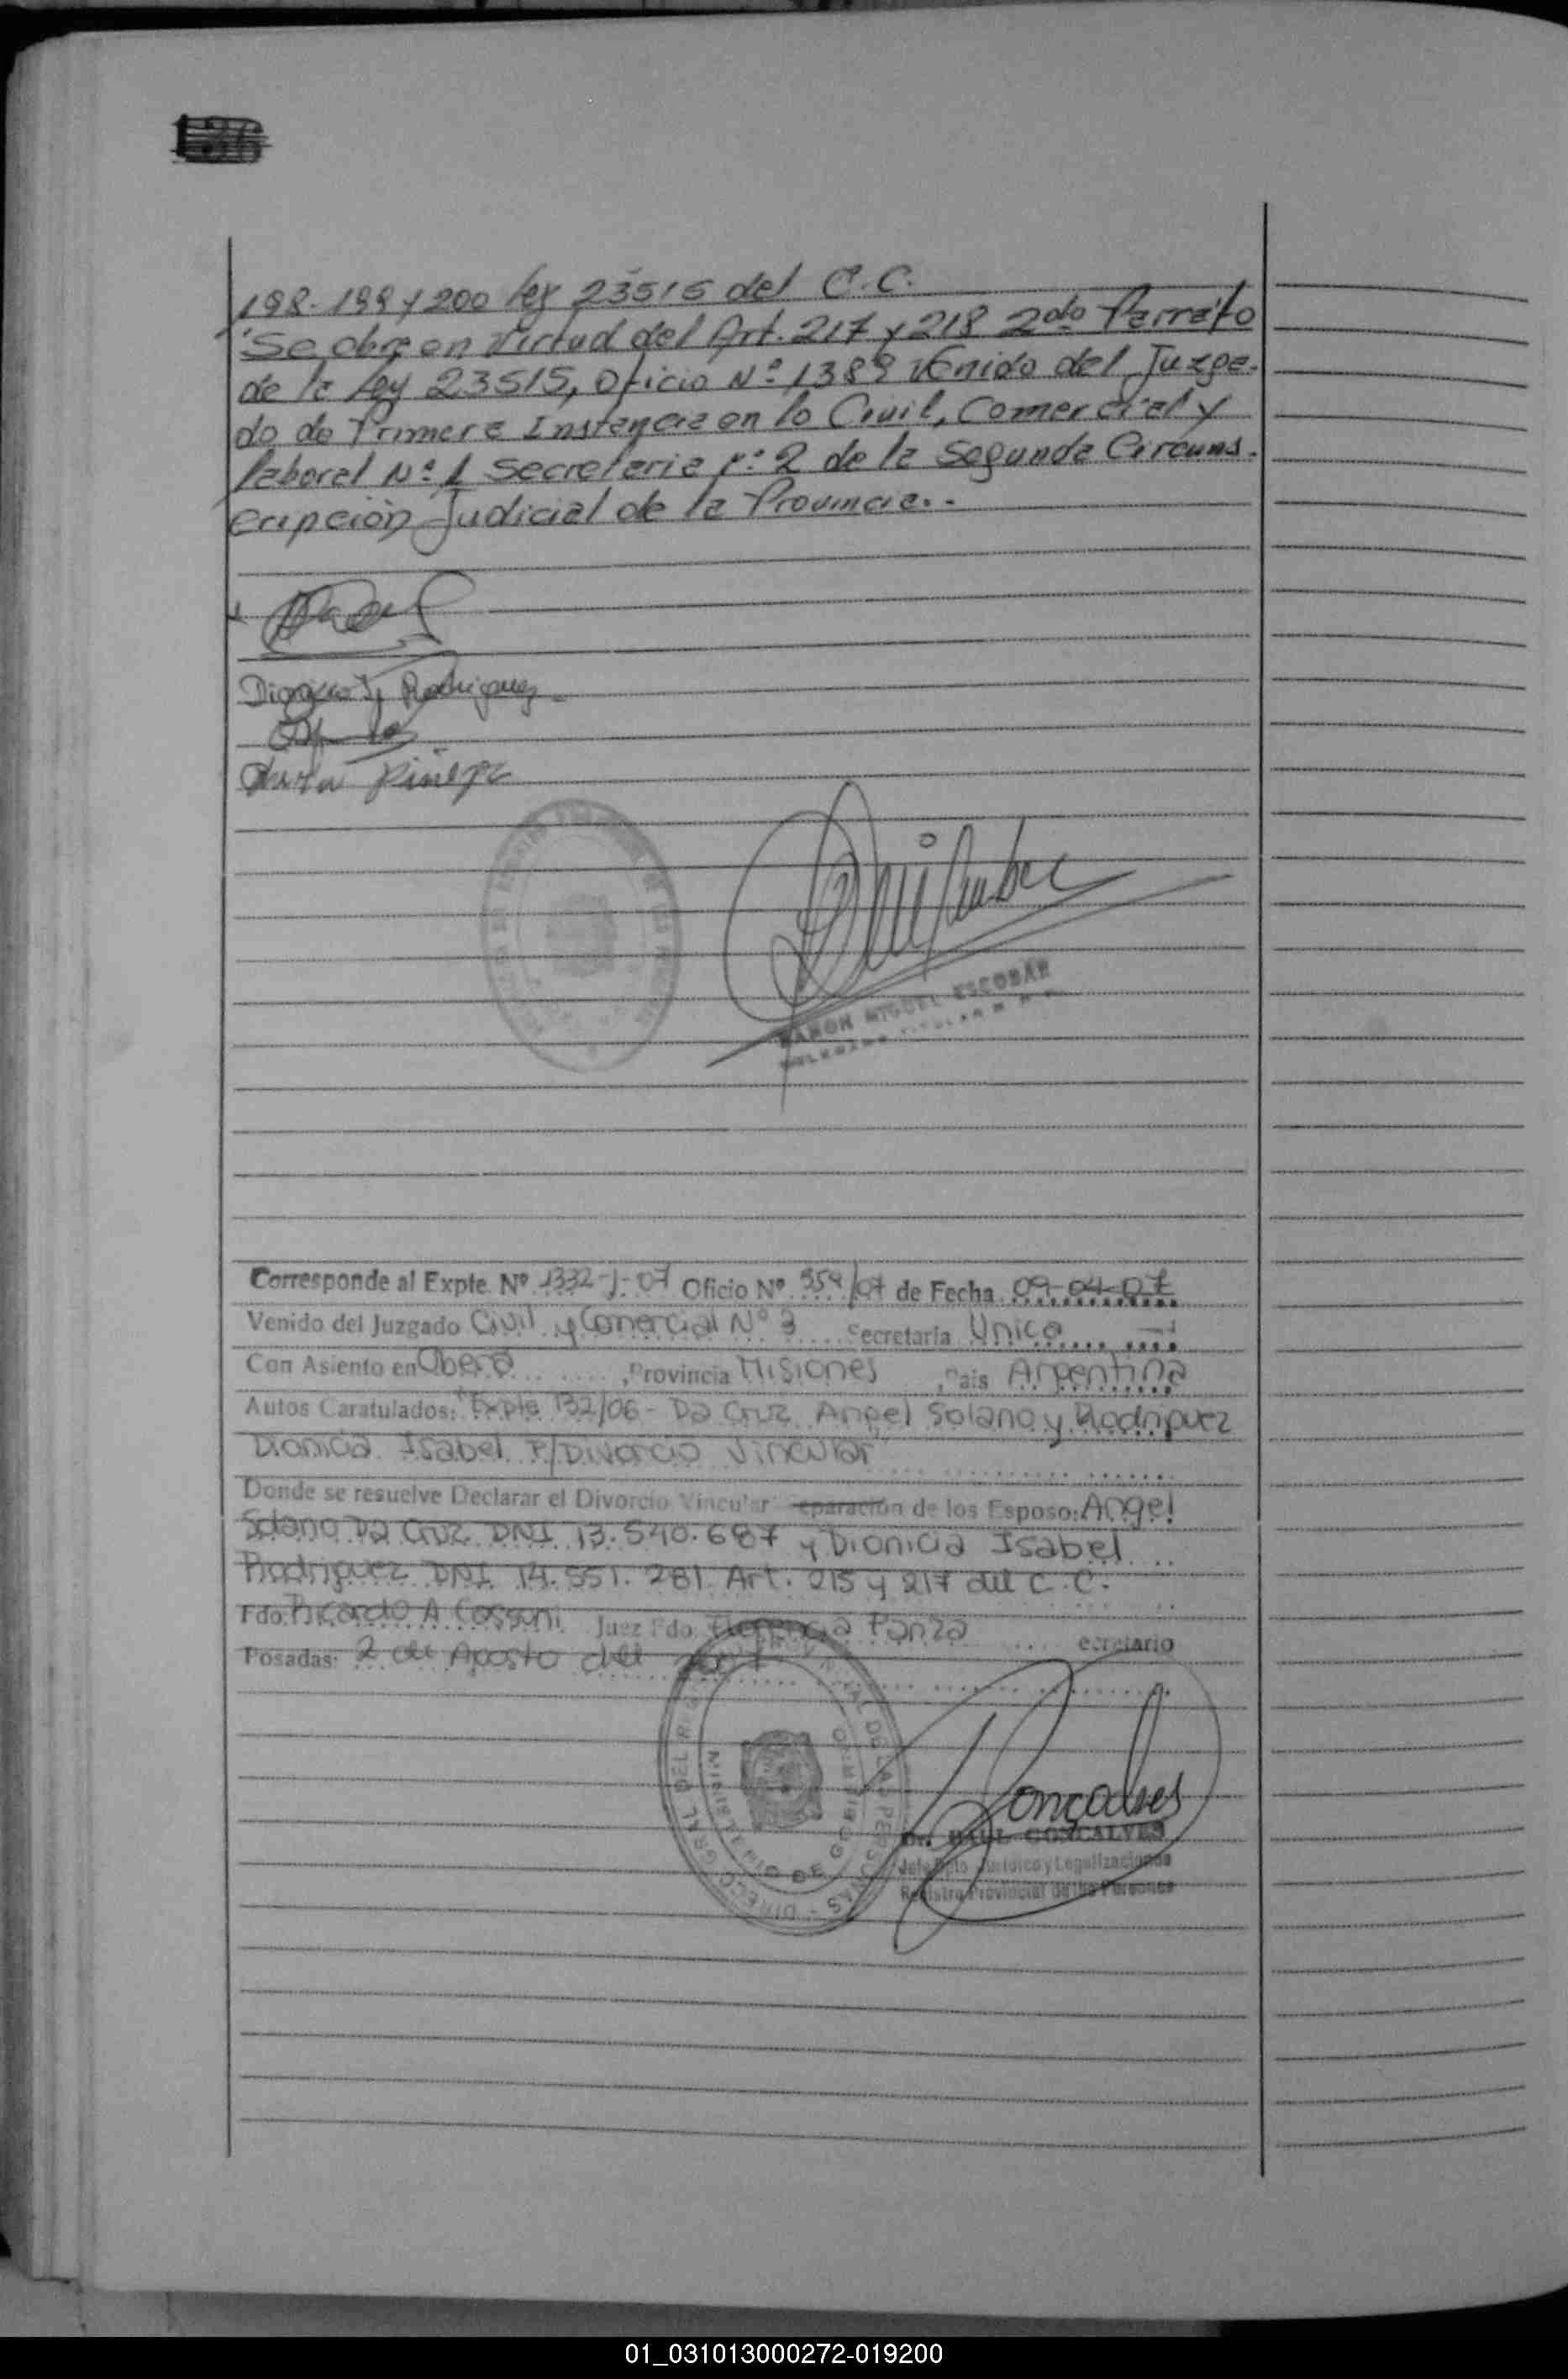 136
198-199 y 200 Ley 23515 del C.C.
Se obra en Virtud del Art. 217 y 218 2do Parrafo
de la Ley 23515, Oficio Nº 1389 Venido del Juzga-
do de Primera Instancia en lo Civil, Comercial y
laboral Nº 1 Secretaria Nº 2 de la Segunda Circuns-
cripción Judicial de la Provincia.-
Dionicia I. Rodriguez
RAMON MIGUEL ESCOBAR
Corresponde al Expte. Nº 1332-J-07 Oficio Nº 554/07 de Fecha 09-04-07
Venido del Juzgado Civil y Comercial Nº 3 Secretaria Unica
Con Asiento en Obera, Provincia Misiones, Pais Argentina
Autos Caratulados: "Expte 132/06 - Da Cruz Angel Solano y Rodriguez
Dionicia Isabel P/Divorcio Vincular"
Donde se resuelve Declarar el Divorcio Vincular eparación de los Esposo: Angel
Solano Da Cruz DNI 13.540.687 y Dionicia Isabel
Rodriguez DNI 14.551.281 Art. 215 y 217 del C.C.
Fdo. Ricardo A Cassoni Juez Fdo. Florencia Panza ecretario
Posadas: 2 de Agosto del 2007
DIRECC GRAL DEL R PROVINCIAL DE LAS PERSONAS
MINISTERIO DE GOBIERNO
Goncalves
Dr. RAUL GONCALVES
Jefe Dpto Juridico y Legalizaciones
Registro Provincial de las Personas
01_031013000272-019200